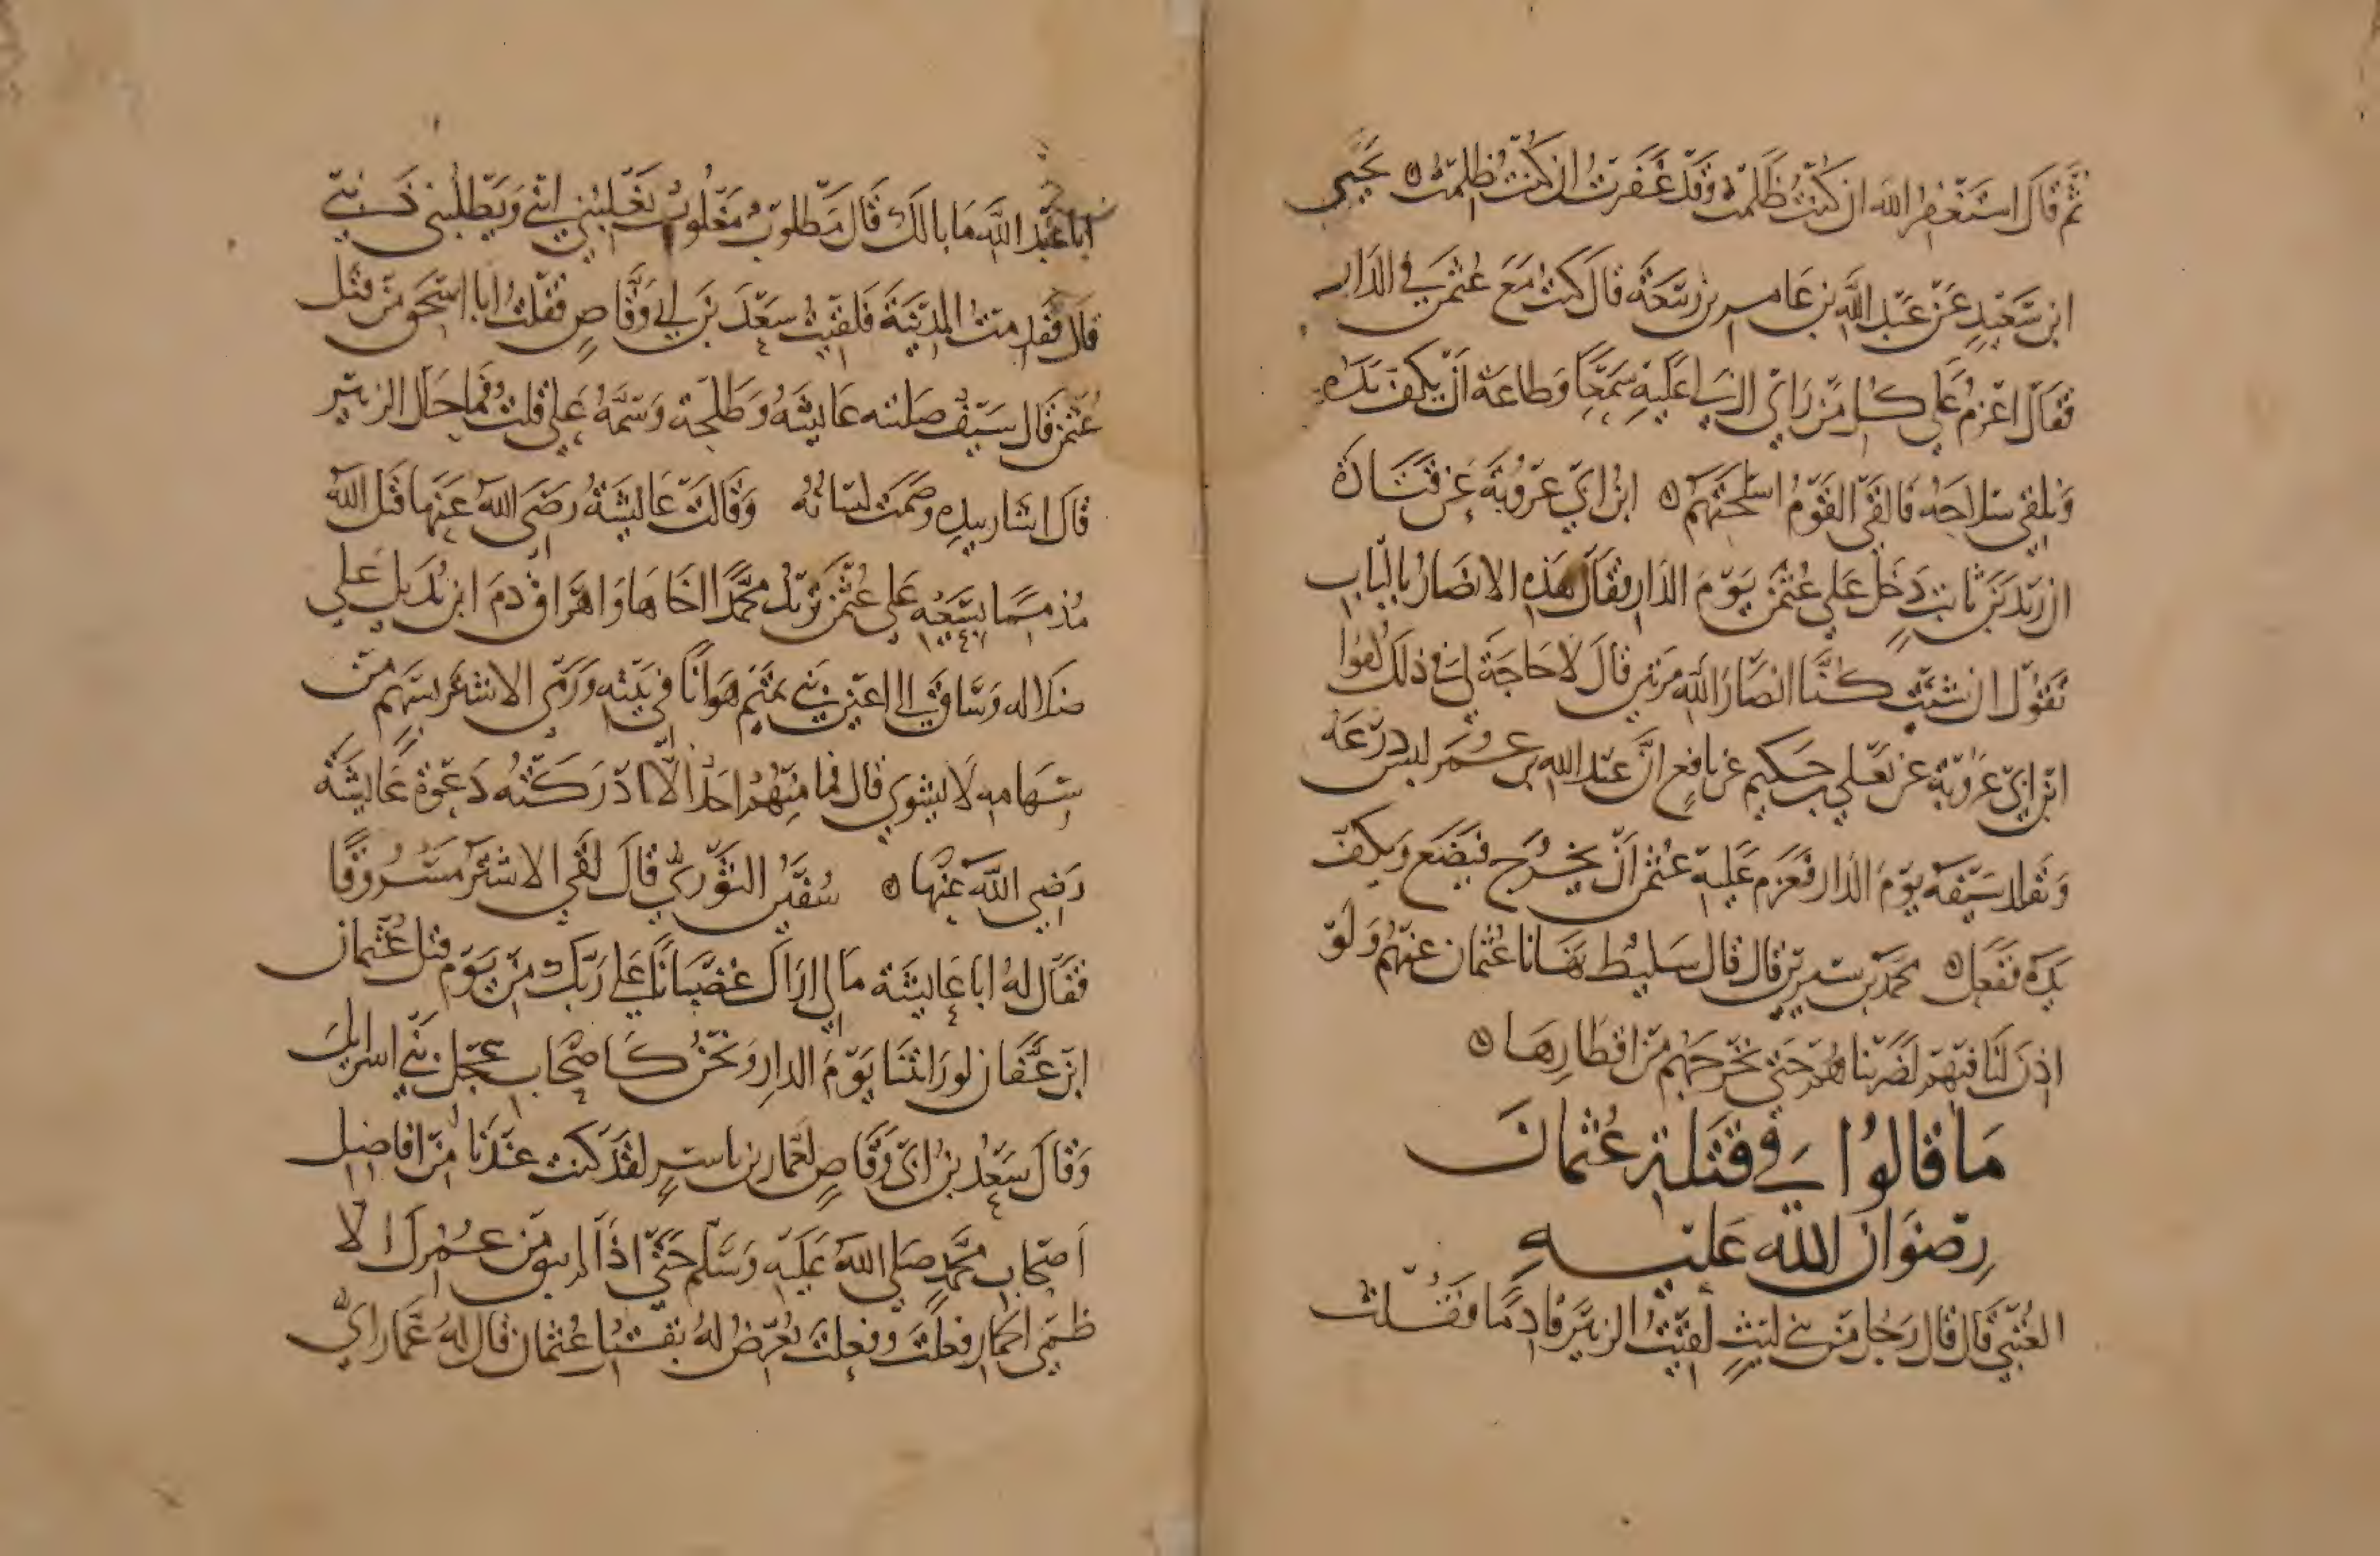 ثم قال استغفر الله ان كنت ظلمت وقد غفرت ان كنت ظلمت ۞ يحيى
ابن سعيد عن عبد الله بن عامر بن ربيعة قال كنت مع عثمن في الدار
فقال اعزم على كل من رأى ان لي عليه سمعا وطاعة ان يكف يده
ويلقي سلاحه فالقى القوم اسلحتهم ۞ ابن ابي عروبة عن قتادة
ان زيد بن ثابت دخل على عثمن يوم الدار فقال هذه الانصار بالباب
تقول ان شئت كنا انصار الله مرتين قال لا حاجة لي في ذلك كفوا
ابن ابي عروبة عن يعلى بن حكيم عن نافع ان عبد الله بن عمر لبس درعه
وتقلد سيفه يوم الدار فعزم عليه عثمن ان يخرج فيضع ويكف
يده ففعل ۞ محمد بن سيرين قال قال سليط نهانا عثمان عنهم ولو
اذن لنا فيهم لضربناهم حتى نخرجهم من اقطارها ۞
ما قالوا في قتلة عثمان
رضوان الله عليه
العتبي قال قال رجل من بني ليث لقيت الزبير قادما فقلت
ابا عبد الله ما بالك قال مطلوب مغلوب يغلبني ابني ويطلبني ذنبي
قال فقدمت المدينة فلقيت سعد بن ابي وقاص فقلت ابا اسحق من قتل
عثمن قال سيف سلته عايشة وطلحة وسمه علي قلت فما حال الزبير
قال اشار بيده وصمت لسانه وقالت عايشة رضي الله عنها قتل الله
مذمما بسعيه على عثمن تريد محمدا اخاها واهراق دم ابن بديل على
ضلاله وساق الى اعين بني تميم هوانا في بيته ورمى الاشتر بسهم من
سهامه لا يشوي قال فما منهم احد الا ادركته دعوة عايشة
رضي الله عنها ۞ سفين الثوري قال لقي الاشتر مسروقا
فقال له ابا عايشة ما لي اراك غضبانا على ربك من يوم قتل عثمان
ابن عفان لو رايتنا يوم الدار ونحن كاصحاب عجل بني اسرايل
وقال سعد بن ابي وقاص لعمار بن ياسر لقد كنت عندنا من افاضل
اصحاب محمد صلى الله عليه وسلم حتى اذا لم يبق من عمرك الا
ظمي الحمار فعلت وفعلت يعرض له بقتل عثمان قال له عمار اي